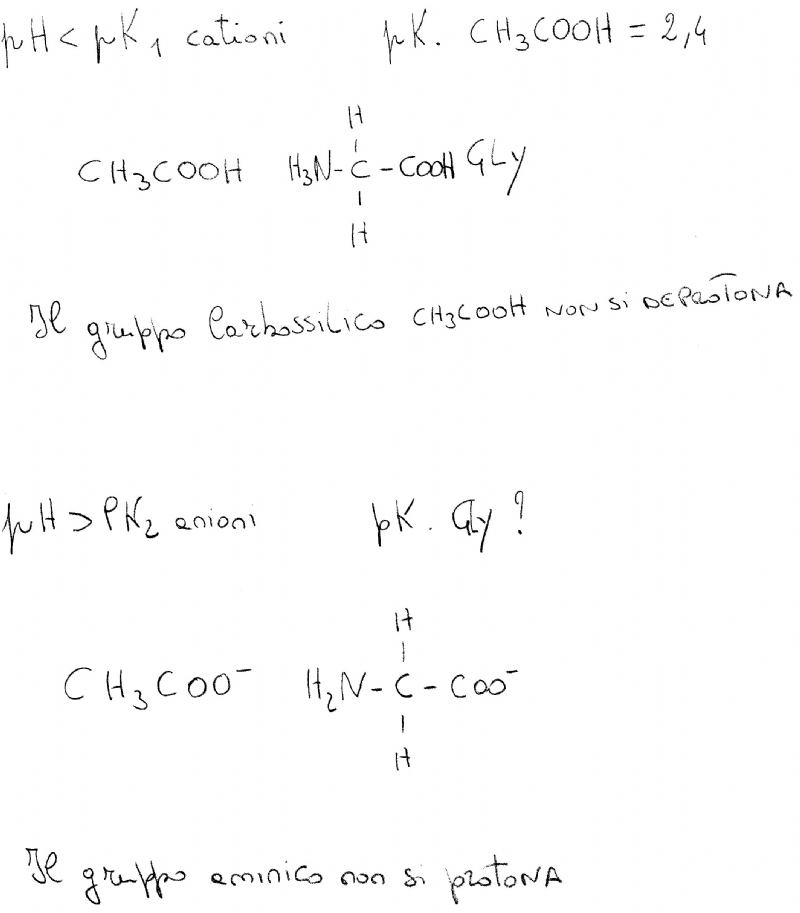 pH < pK1 cationi pK. CH3COOH = 2,4
H
CH3COOH H3N-C-COOH GLy
H
Il gruppo Carbossilico CH3COOH NON Si DEPROTONA
pH > PK2 anioni pK. Gly ?
H
CH3COO⁻ H2N-C-COO⁻
H
Il gruppo aminico non si protONA